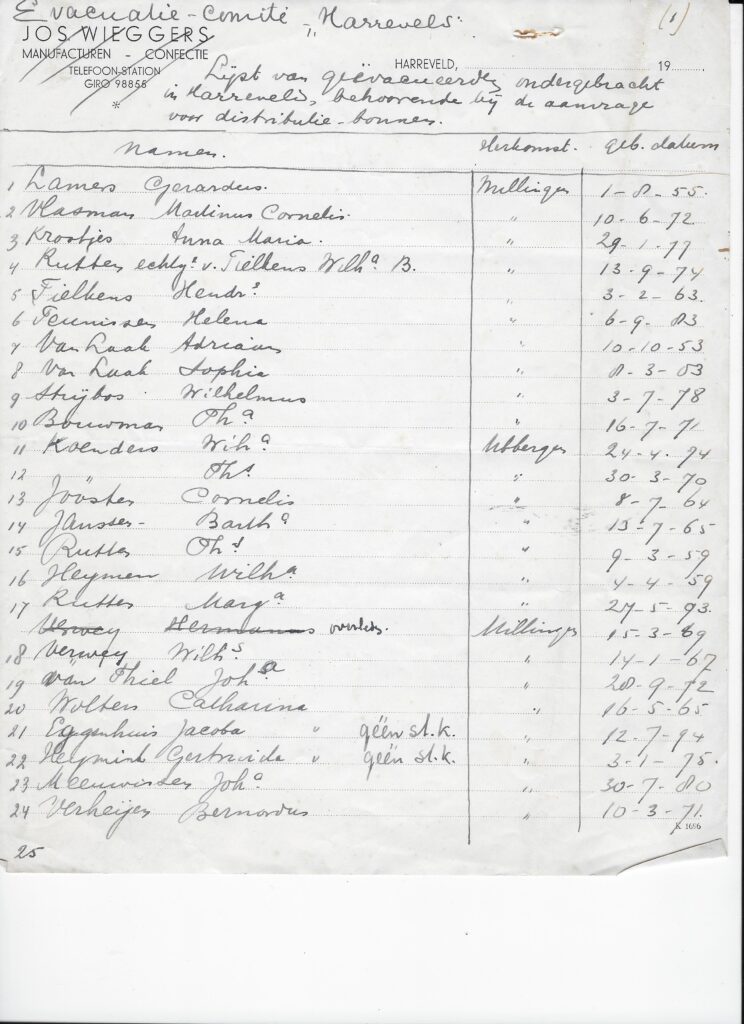 Evacuatie-Comité „Harreveld" (1)
JOS WIEGGERS
MANUFACTUREN - CONFECTIE
TELEFOON-STATION
GIRO 98855
HARREVELD, 19
Lijst van geëvacueerden ondergebracht
in Harreveld, behoorende bij de aanvrage
voor distributie-bonnen.
Namen. Herkomst. geb. datum
1 Lamers Gerardus. Millingen 1-8-55.
2 Vlasman Martinus Cornelis. " 10-6-72
3 Krostjes Anna Maria. " 29-1-77
4 Rutten echtg. v. Tielkens Wilhª B. " 13-9-74
5 Tielkens Hendr. " 3-2-63.
6 Teunissen Helena " 6-9-83
7 Van Laak Adriaan " 10-10-53
8 Van Laak Sophia " 8-3-83
9 Strijbos Wilhelmus " 3-7-78
10 Bouwman Thª " 16-7-71
11 Koenders Wilhª Ubbergen 24-4-74
12 " Ths " 30-3-70
13 Joosten Cornelis " 8-7-64
14 Janssen- Barthª " 15-7-65
15 Rutten Ths " 9-3-59
16 Heymen Wilhª " 4-4-59
17 Rutten Margª " 27-5-93.
Verwey Hermanus overleden. Millingen 15-3-69
18 Verwey Wilhs " 14-1-67
19 van Thiel Johsa " 28-9-72
20 Wolters Catharina " 16-5-65
21 Eggenhuis Jacoba " géén st.k. " 12-7-94
22 Heymink Gertruida " géén st.k. " 3-1-75.
23 Meeuwissen Johª " 30-7-80
24 Verheijen Bernardus " 10-3-71.
K 1686
25